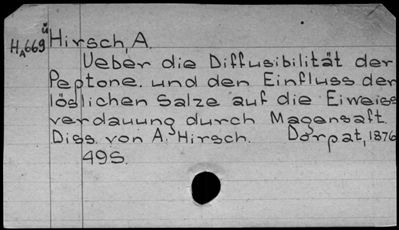 HA669ü Hirsch, A.
Ueber die Diffusibilität der
Peptone und den Einfluss der
löslichen Salze auf die Eiweiss
verdauung durch Magensaft
Diss. von A. Hirsch. Dorpat, 1876
49S.